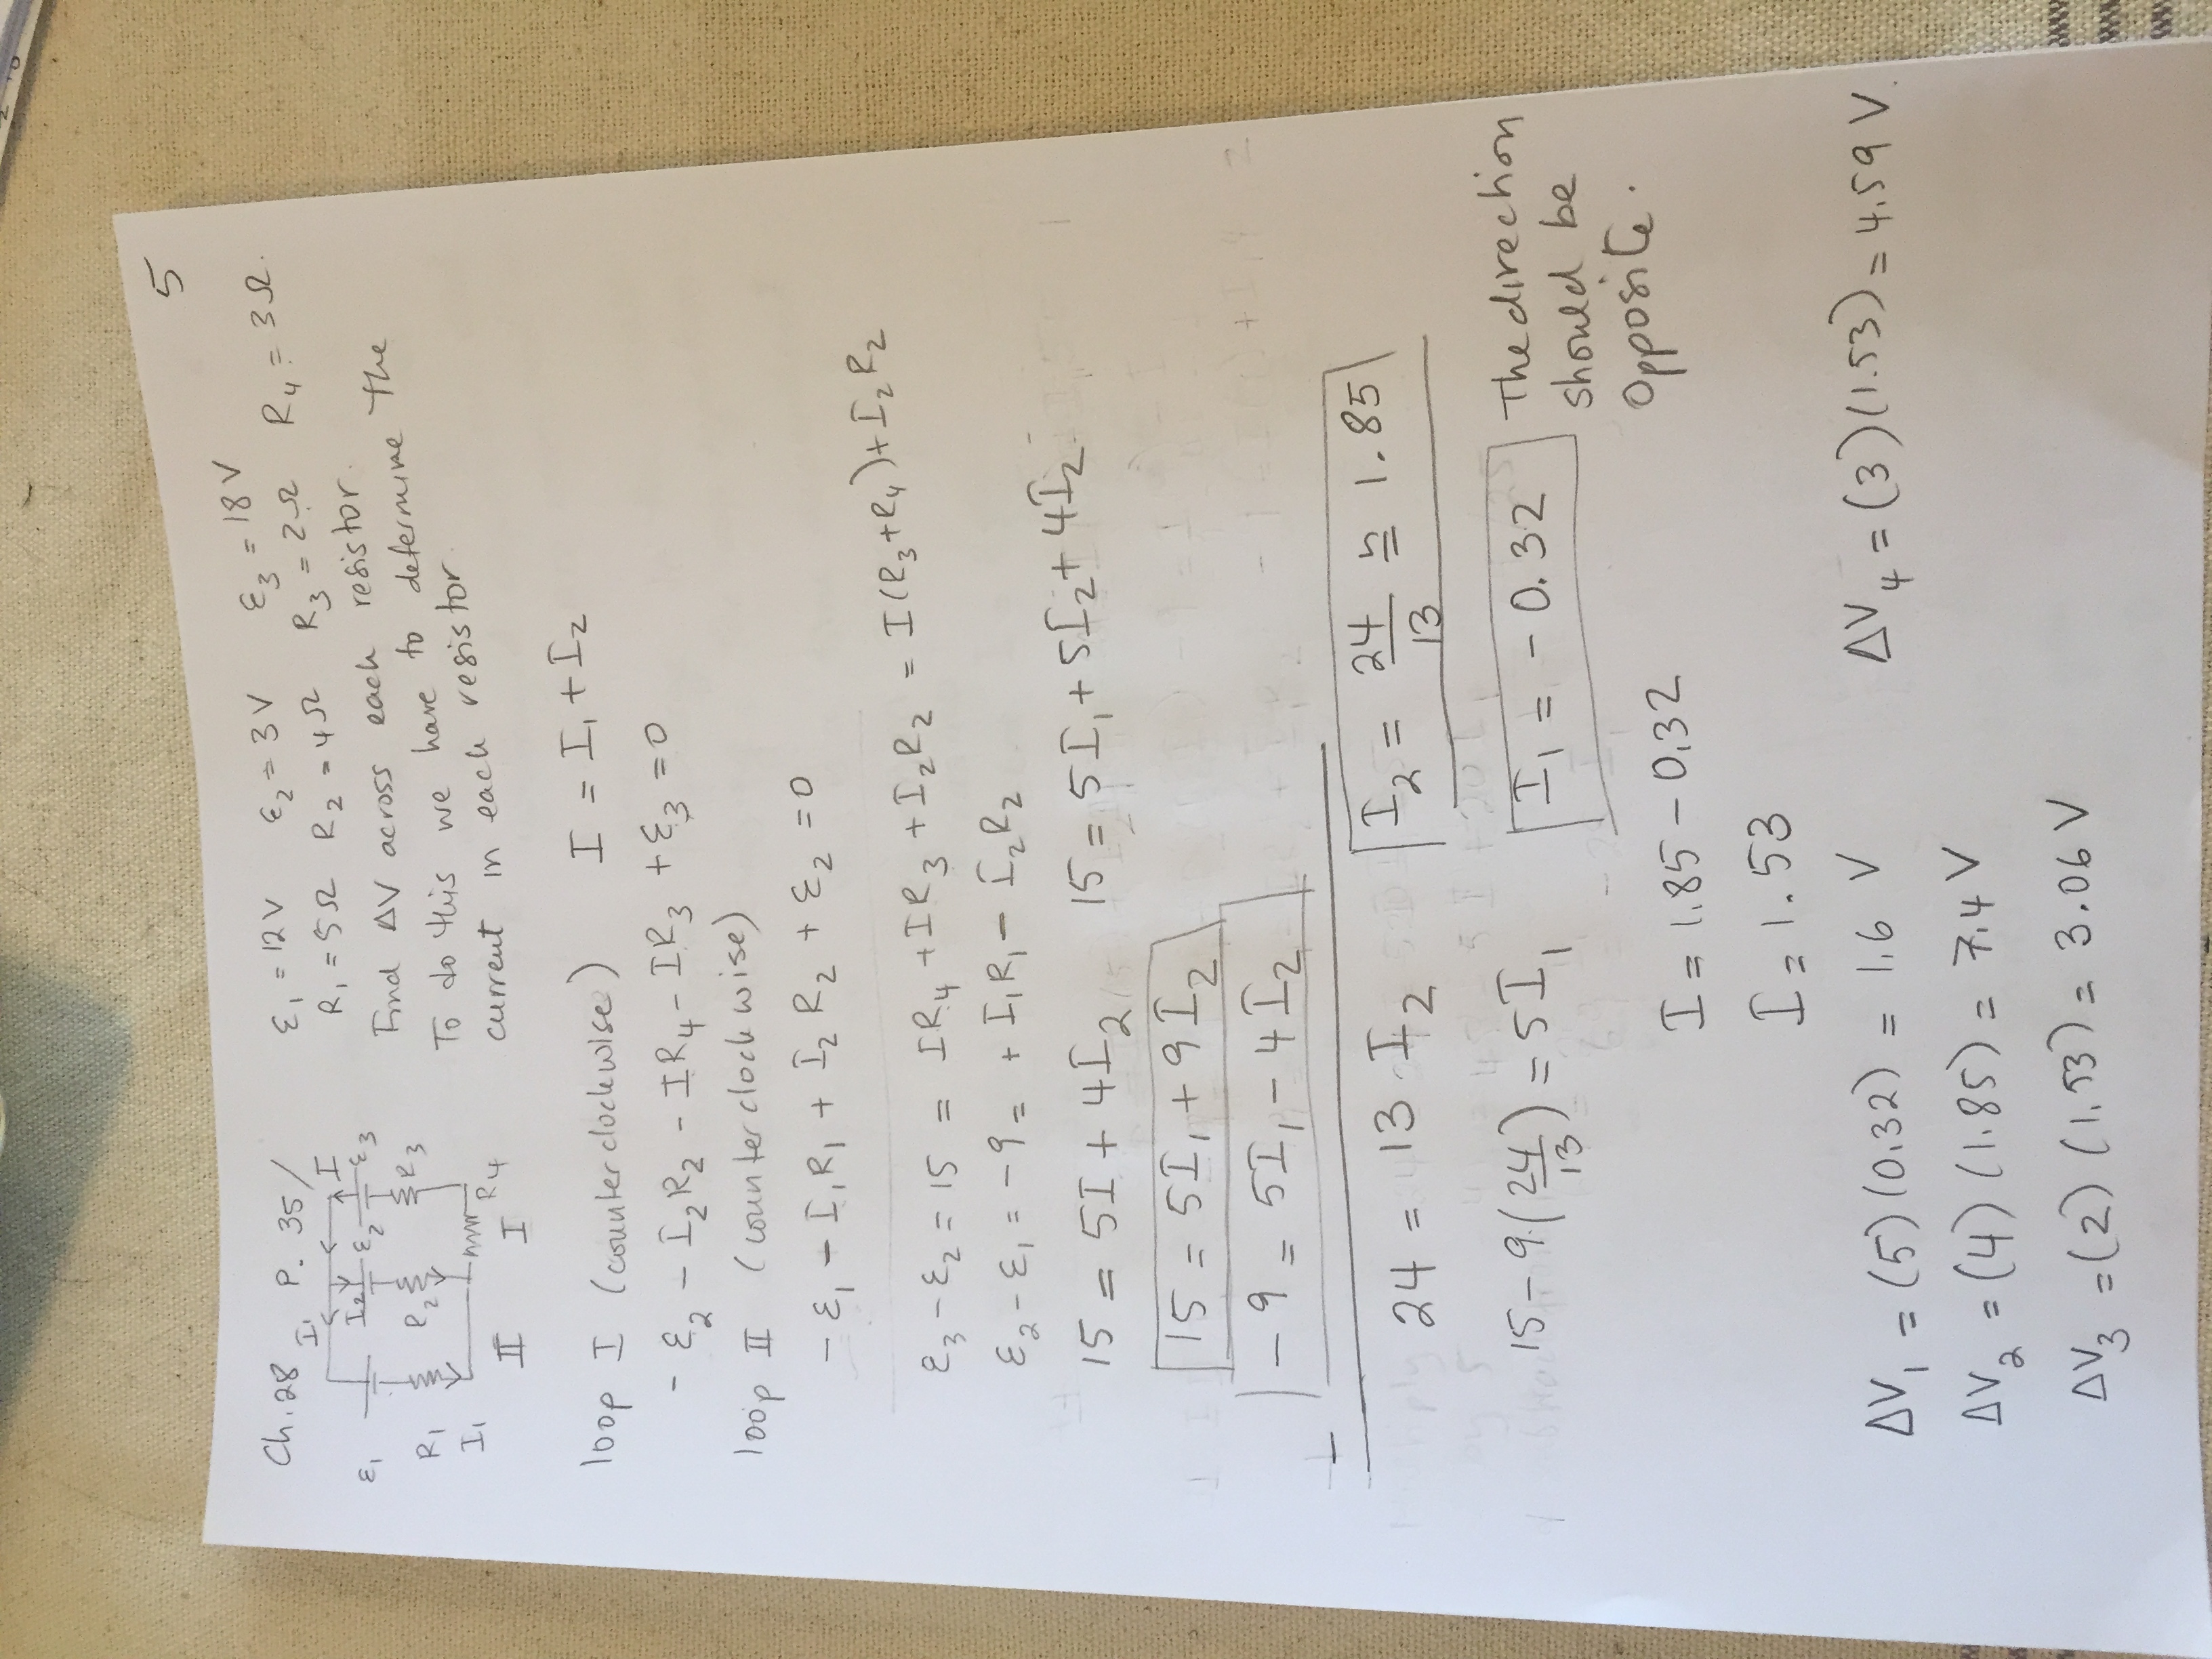 5
Ch.28 P. 35/
ε₁ = 12V ε₂ = 3V ε₃ = 18V
R₁ = 5Ω R₂ = 4Ω R₃ = 2Ω R₄ = 3Ω.
I₁ I
ε₁ I₂ ε₂ ε₃
R₁ R₂ R₃
I₁ R₄
II I
Find ΔV across each resistor.
To do this we have to determine the
current in each resistor.
loop I (counterclockwise) I = I₁ + I₂
- ε₂ - I₂R₂ - IR₄ - IR₃ + ε₃ = 0
loop II (counterclockwise)
- ε₁ - I₁R₁ + I₂R₂ + ε₂ = 0
ε₃ - ε₂ = 15 = IR₄ + IR₃ + I₂R₂ = I(R₃+R₄) + I₂R₂
ε₂ - ε₁ = -9 = + I₁R₁ - I₂R₂
15 = 5I + 4I₂ 15 = 5I₁ + 5I₂ + 4I₂
15 = 5I₁ + 9I₂
-9 = 5I₁ - 4I₂
24 = 13 I₂ I₂ = 24/13 ≅ 1.85
15 - 9(24/13) = 5I₁ I₁ = -0.32 The direction
should be
opposite.
I = 1.85 - 0.32
I = 1.53
ΔV₁ = (5)(0.32) = 1.6 V ΔV₄ = (3)(1.53) = 4.59 V.
ΔV₂ = (4)(1.85) = 7.4 V
ΔV₃ = (2)(1.53) = 3.06 V